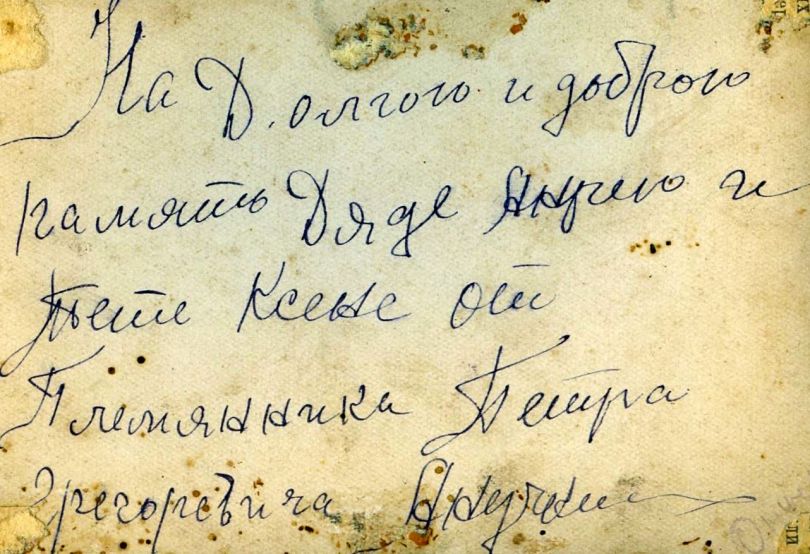 На Долгою и доброю
память Дяде Андрею и
Тете Ксене от
Племянника Петра
Грегоревича